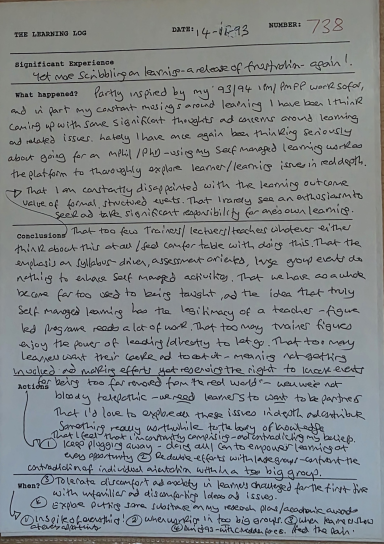 THE LEARNING LOG DATE: 14-  -93 NUMBER: 738
Significant Experience
Yet more scribbling on learning - a release of frustration - again!.
What happened? Partly inspired by my '93/94 work so far,
and in part my constant musings around learning I have been I think
coming up with some significant thoughts and concerns around learning
and related issues. Lately I have once again been thinking seriously
about going for an MPhil/PhD - using my Self Managed Learning work as
the platform to thoroughly explore learner/learning issues in real depth.
→ That I am constantly disappointed with the learning outcome
value of formal, structured events. That I rarely see an enthusiasm to
seek and take significant responsibility for one's own learning.
Conclusions That too few trainers/lecturers/teachers whatever either
think about this at all/feel comfortable with doing this. That the
emphasis on syllabus-driven, assessment oriented, large group events do
nothing to enhance self managed activities. That we have as a whole
become far too used to being taught, and the idea that truly
Self managed learning has the legitimacy of a teacher-figure
led programme needs a lot of work. That too many trainer figures
enjoy the power of leading/directly to let go. That too many
learners want their cake and to eat it - meaning not getting
involved and making efforts yet reserving the right to events
for being too far removed from the real world - we're not
Actions bloody telepathic - we need learners to want to be partners
That I'd love to explore these issues in depth and contribute
something really worthwhile to the body of knowledge
That I feel that I'm constantly compromising - and contradicting my beliefs.
① Keep plugging away - doing all I can to empower learning at
every opportunity ② efforts with - confront the
contradiction of individual within a too big group.
When? ③ Tolerate discomfort and anxiety in learners challenged for the first time
with unfamiliar and discomforting ideas and issues.
④ Explore putting some substance on my research plans/academic
① In spite of everything! ② when working in too big groups ③ when learners show
the pain!